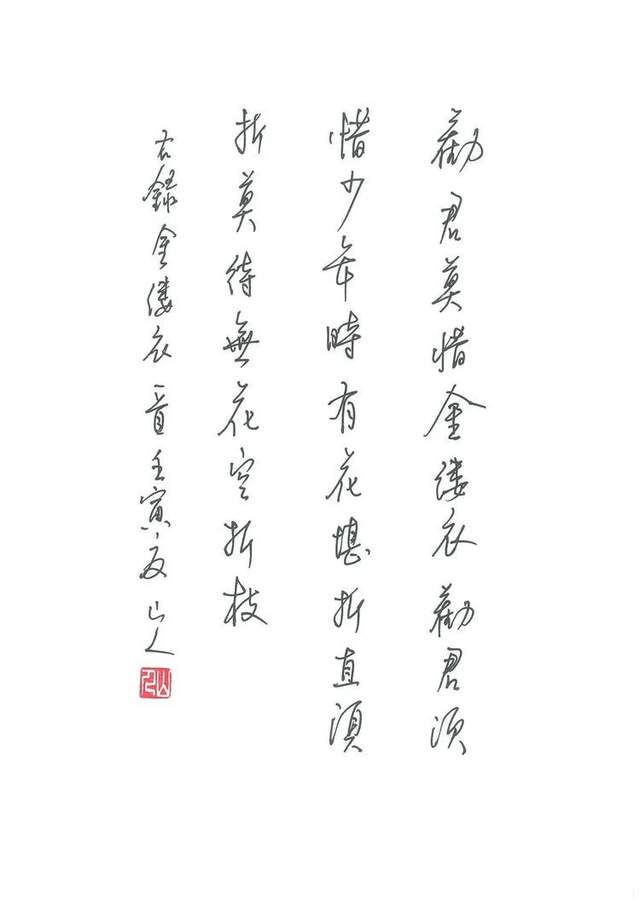 勸君莫惜金縷衣勸君須
惜少年時有花堪折直須
折莫待無花空折枝
右錄金縷衣一首壬寅夏山人
山人